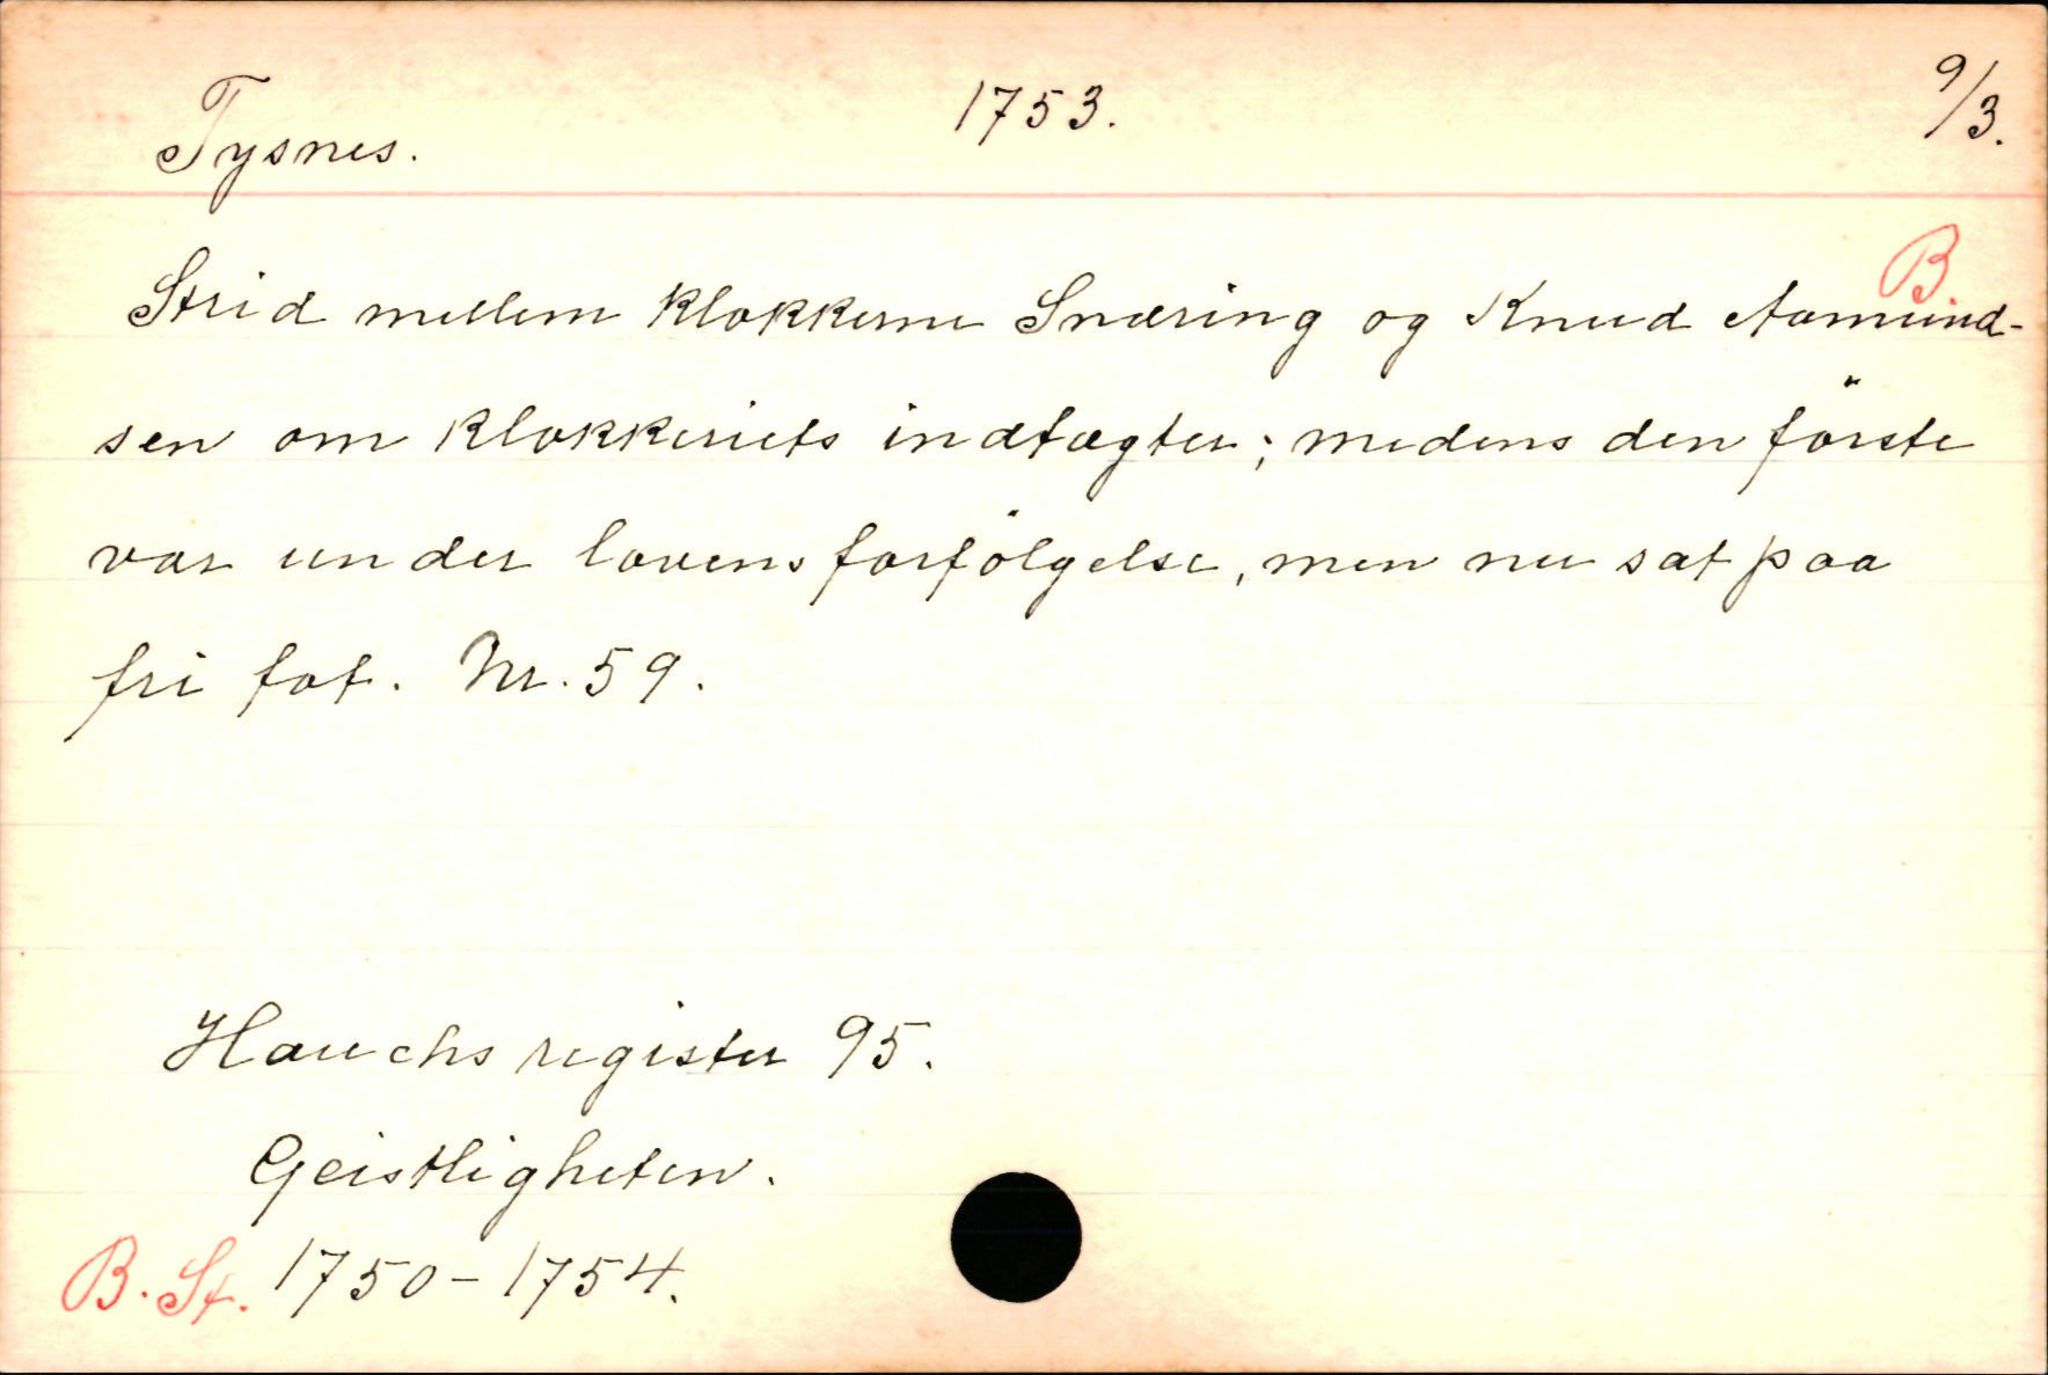 Tysnes. 1753. 9/3.
B.
Strid mellem klokkerne Snæring og Knud Aamund-
sen om klokkeriets indtægter; medens den förste
var under lovens forfölgelse, men nu sat paa
fri fot. Nr. 59.
Hauchs register 95.
Geistligheten.
B. St. 1750-1754.